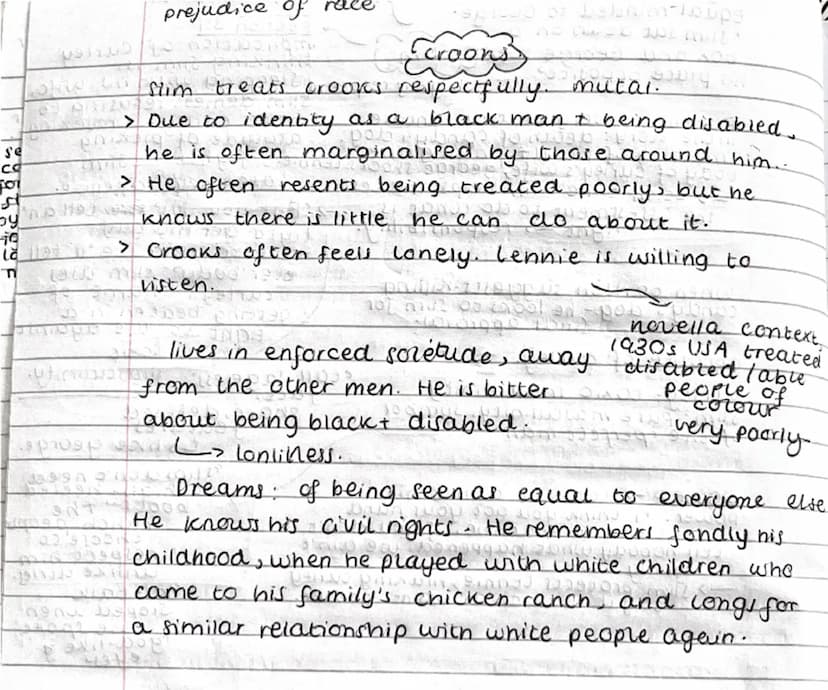 prejudice of race
Crooks
Slim treats crooks respectfully. mutal.
> Due to identity as a black man + being disabled,
he is often marginalised by those around him.
> He often resents being treated poorly, but he
knows there is little he can do about it.
> Crooks often feels lonely. Lennie is willing to
listen.
novella context
1930s USA treated
disabled / able
people of
colour
very poorly
lives in enforced soletude, away
from the other men. He is bitter
about being black + disabled.
↳ lonliness.
Dreams: of being seen as equal to everyone else
He knows his civil rights. He remembers fondly his
childhood, when he played with white children who
came to his family's chicken ranch, and longs for
a similar relationship with white people again.